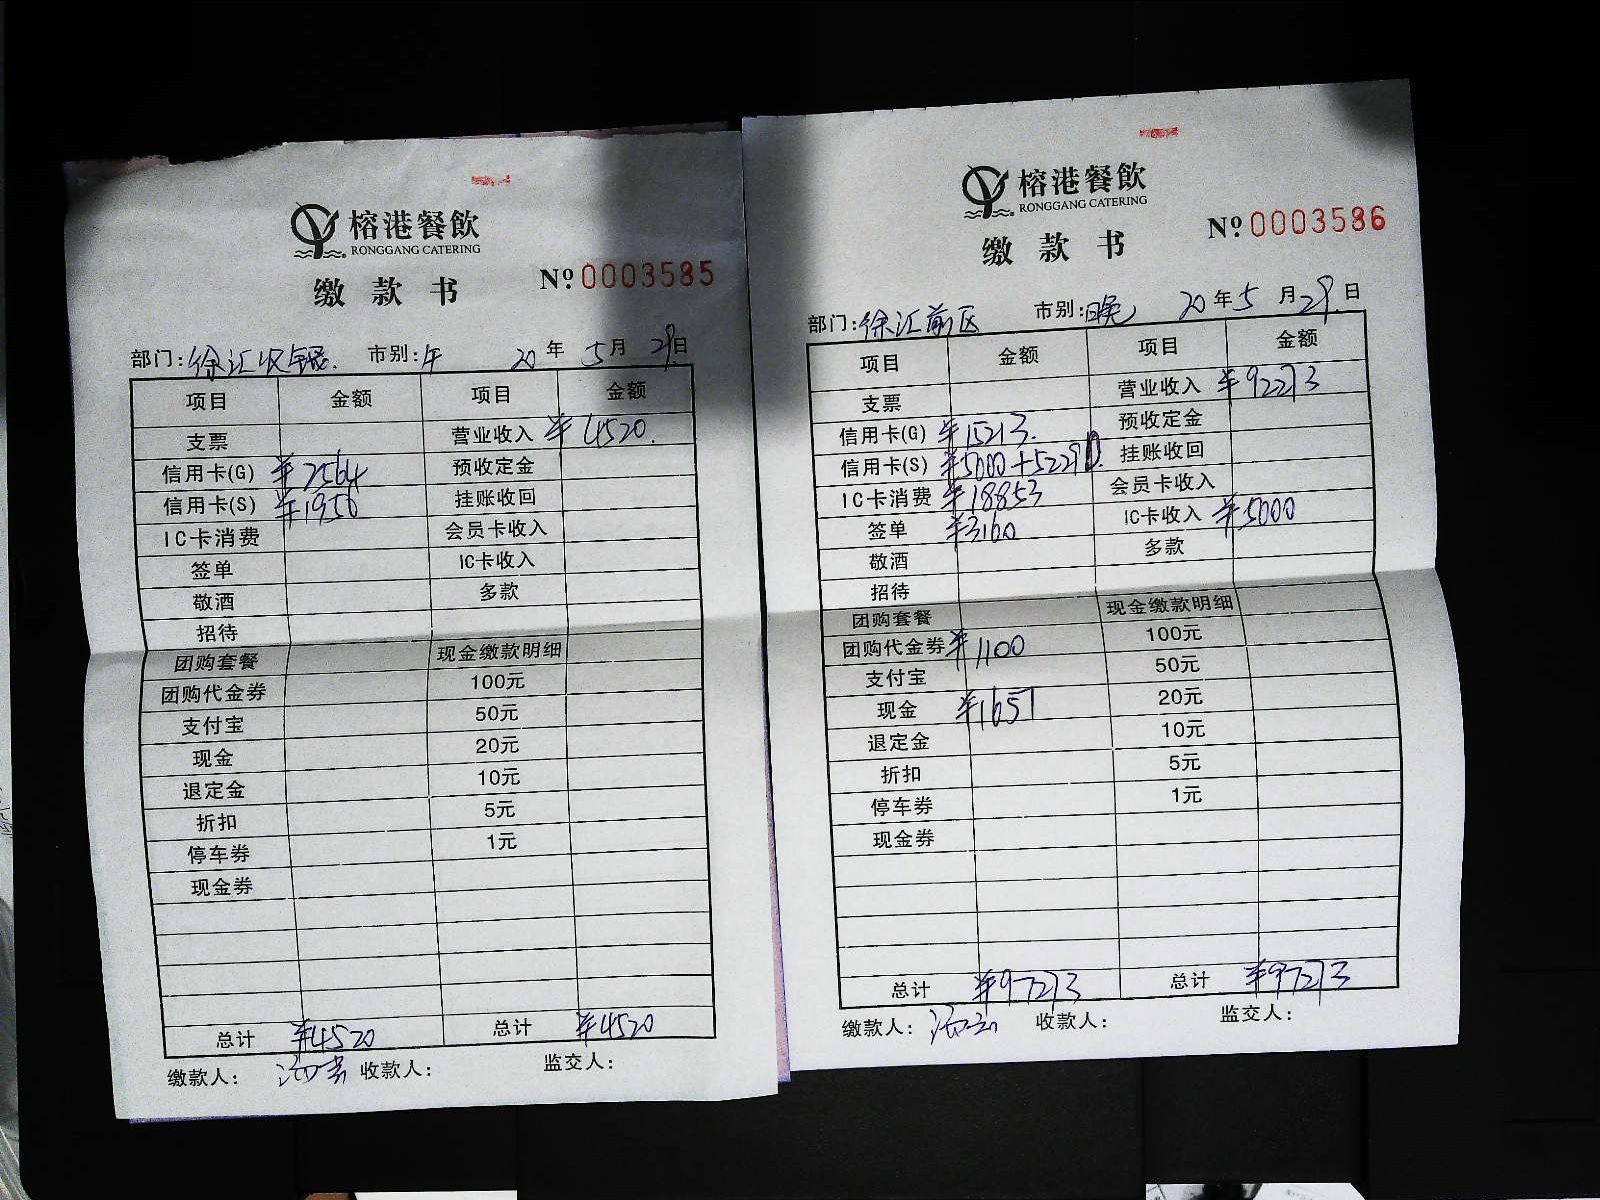 榕港餐飲
RONGGANG CATERING
缴款书
№ 0003585
部门：徐汇收银 市别：午 20年5月29日
项目 金额 项目 金额
支票 营业收入 ¥4520.
信用卡(G) ¥2564 预收定金
信用卡(S) ¥1956 挂账收回
IC卡消费 会员卡收入
签单 IC卡收入
敬酒 多款
招待
团购套餐 现金缴款明细
团购代金券 100元
支付宝 50元
现金 20元
退定金 10元
折扣 5元
停车券 1元
现金券
总计 ¥4520 总计 ¥4520
缴款人： 收款人： 监交人：
榕港餐飲
RONGGANG CATERING
缴款书
№ 0003586
部门：徐汇前区 市别：晚 20年5月29日
项目 金额 项目 金额
支票 营业收入 ¥92273
信用卡(G) ¥15213. 预收定金
信用卡(S) ¥5000+52290. 挂账收回
IC卡消费 ¥18853 会员卡收入
签单 ¥3160 IC卡收入 ¥5000
敬酒 多款
招待
团购套餐 现金缴款明细
团购代金券 ¥1100 100元
支付宝 50元
现金 ¥1657 20元
退定金 10元
折扣 5元
停车券 1元
现金券
总计 ¥97273 总计 ¥97273
缴款人： 收款人： 监交人：